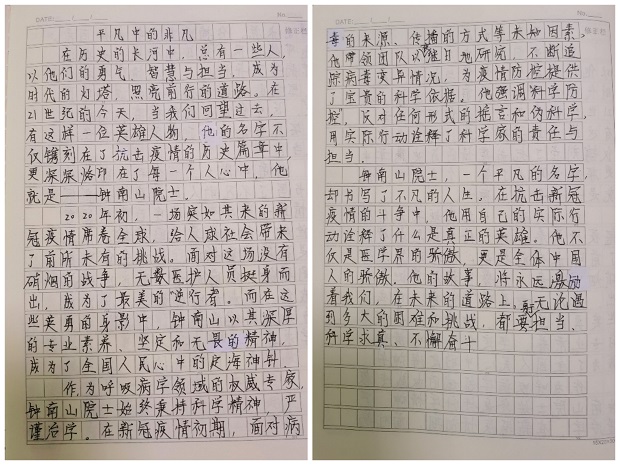 DATE: / /
No.
平凡中的非凡
在历史的长河中，总有一些人，
以他们的勇气、智慧与担当，成为
时代的灯塔，照亮前行的道路。在
21世纪的今天，当我们回望过去，
有这样一位英雄人物，他的名字不
仅镌刻在了抗击疫情的历史篇章中，
更深深烙印在了每一个人心中，他
就是——钟南山院士。
2020年初，一场突如其来的新
冠疫情席卷全球，给人球社会带来
了前所未有的挑战。面对这场没有
硝烟的战争，无数医护人员挺身而
出，成为了最美的"逆行者。而在这
些英勇的身影中，钟南山以其深厚
的专业素养、坚定和无畏的精神，
成为了全国人民心中的定海神针。
作为呼吸病学领域的权威专家，
钟南山院士始终秉持科学精神，严
谨治学。在新冠疫情初期，面对病
DATE: / /
No.
毒的来源、传播的方式等未知因素，
他带领团队夜以继日地研究，不断追
踪病毒变异情况，为疫情防控提供
了宝贵的科学依据。他强调科学防
控，反对任何形式的谣言和伪科学，
用实际行动诠释了科学家的责任与
担当。
钟南山院士，一个平凡的名字，
却书写了不凡的人生。在抗击新冠
疫情的斗争中，他用自己的实际行
动诠释了什么是真正的英雄。他不
仅是医学界的骄傲，更是全体中国
人的骄傲。他的故事，将永远激励
着我们，在未来的道路上，无论遇
到多大的困难和挑战，都要担当、
科学求真、不懈奋斗